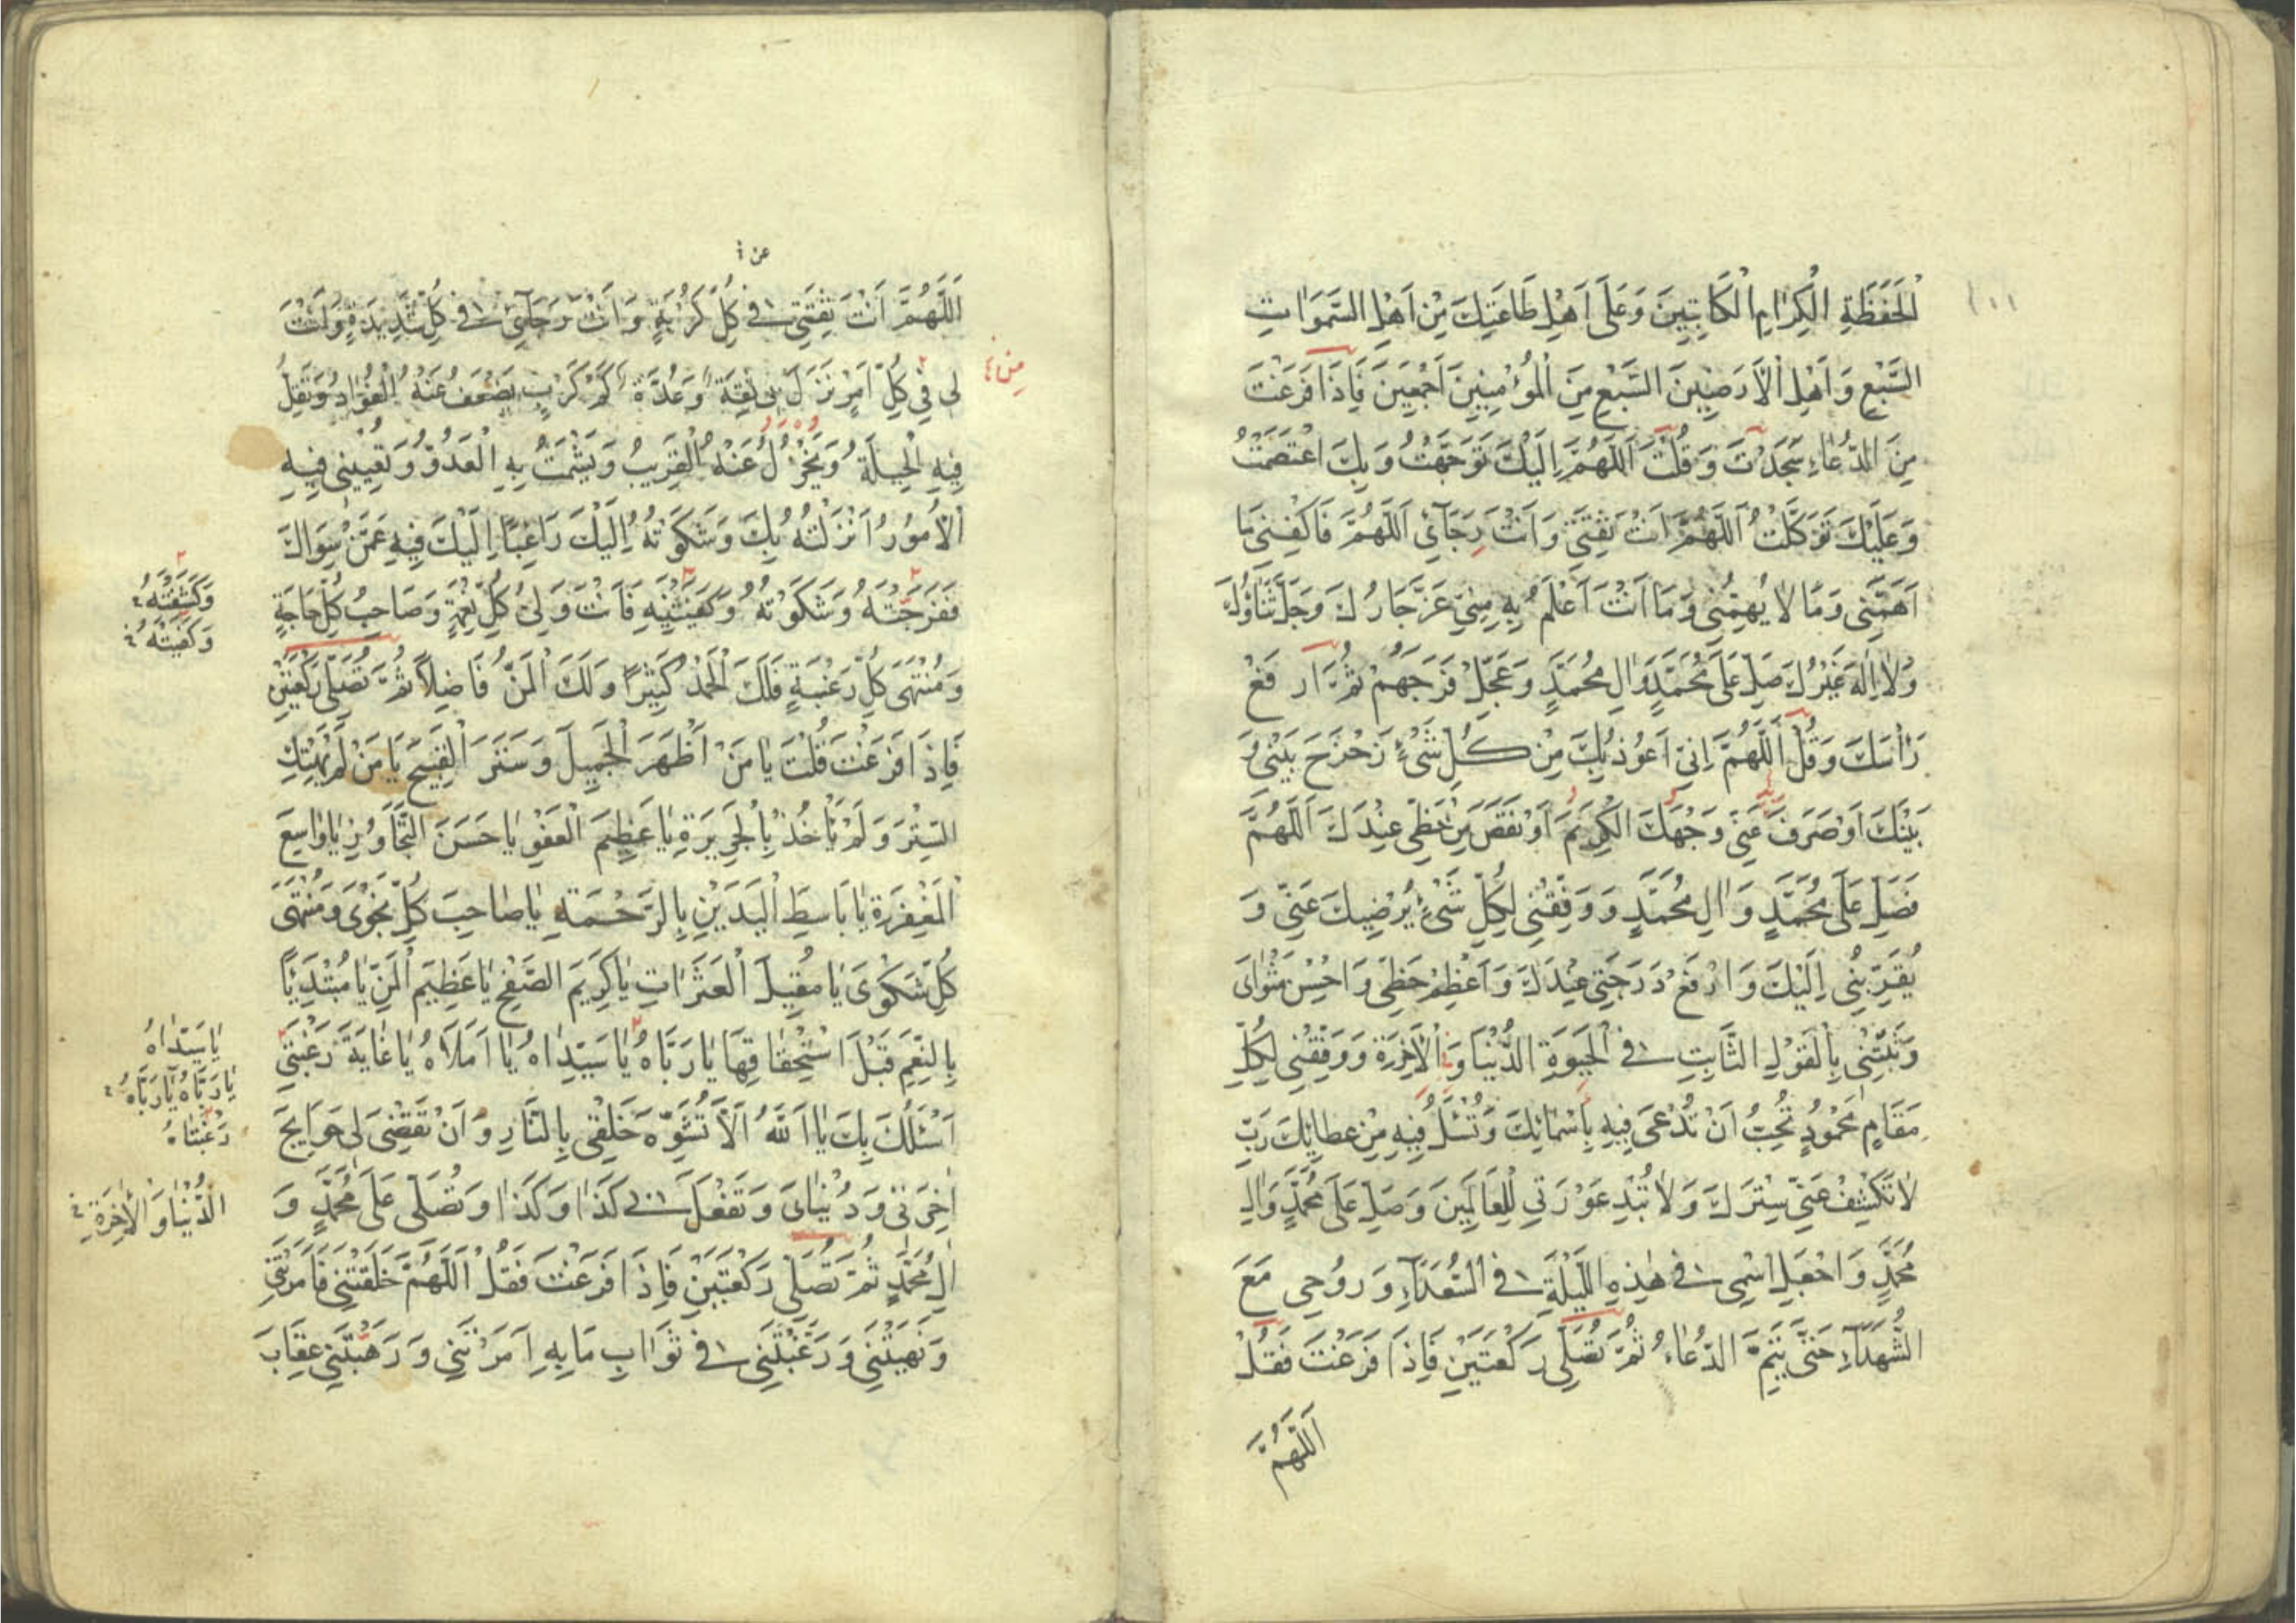 اَلْحَفَظَةِ الْكِرٰامِ الْكَاتِبِينَ وَعَلَى اَهْلِ طَاعَتِكَ مِنْ اَهْلِ السَّمَوَاتِ
السَّبْعِ وَاَهْلِ الْاَرَضِينَ السَّبْعِ مِنَ الْمُؤْمِنِينَ اَجْمَعِينَ فَاِذَا فَرَغْتَ
مِنَ الدُّعَاءِ سَجَدْتَ وَقُلْتَ اَللّٰهُمَّ اِلَيْكَ تَوَجَّهْتُ وَبِكَ اعْتَصَمْتُ
وَعَلَيْكَ تَوَكَّلْتُ اَللّٰهُمَّ اَنْتَ ثِقَتِي وَاَنْتَ رَجَآئِي اَللّٰهُمَّ فَاكْفِنِي مَا
اَهَمَّنِي وَمَا لَا يُهِمُّنِي وَمَا اَنْتَ اَعْلَمُ بِهِ مِنِّي عَزَّ جَارُكَ وَجَلَّ ثَنَاؤُكَ
وَلَا اِلٰهَ غَيْرُكَ صَلِّ عَلَى مُحَمَّدٍ وَاٰلِ مُحَمَّدٍ وَعَجِّلْ فَرَجَهُمْ ثُمَّ ارْفَعْ
رَأْسَكَ وَقُلْ اَللّٰهُمَّ اِنِّي اَعُوذُ بِكَ مِنْ كُلِّ شَيْءٍ زَحْزَحَ بَيْنِي وَ
بَيْنَكَ اَوْ صَرَفَ عَنِّي وَجْهَكَ الْكَرِيمَ اَوْ نَقَصَ مِنْ حَظِّي عِنْدَكَ اَللّٰهُمَّ
فَصَلِّ عَلَى مُحَمَّدٍ وَاٰلِ مُحَمَّدٍ وَوَفِّقْنِي لِكُلِّ شَيْءٍ يُرْضِيكَ عَنِّي وَ
يُقَرِّبُنِي اِلَيْكَ وَارْفَعْ دَرَجَتِي عِنْدَكَ وَاَعْظِمْ حَظِّي وَاَحْسِنْ مَثْوَايَ
وَثَبِّتْنِي بِالْقَوْلِ الثَّابِتِ فِي الْحَيٰوةِ الدُّنْيَا وَفِي الْاٰخِرَةِ وَوَفِّقْنِي لِكُلِّ
مَقَامٍ مَحْمُودٍ تُحِبُّ اَنْ تُدْعَى فِيهِ بِاَسْمَائِكَ وَتُسْئَلَ فِيهِ مِنْ عَطَائِكَ رَبِّ
لَا تَكْشِفْ عَنِّي سِتْرَكَ وَلَا تُبْدِ عَوْرَتِي لِلْعَالَمِينَ وَصَلِّ عَلَى مُحَمَّدٍ وَاٰلِ
مُحَمَّدٍ وَاجْعَلِ اسْمِي فِي هٰذِهِ اللَّيْلَةِ فِي السُّعَدَآءِ وَرُوحِي مَعَ
الشُّهَدَآءِ حَتَّى يَتِمَّ الدُّعَاءُ ثُمَّ تُصَلِّي رَكْعَتَيْنِ فَاِذَا فَرَغْتَ فَقُلْ
اَللّٰهُمَّ
اَللّٰهُمَّ اَنْتَ ثِقَتِي فِي كُلِّ كُرْبَةٍ وَاَنْتَ رَجَآئِي فِي كُلِّ شَدِيدَةٍ وَاَنْتَ
لِي فِي كُلِّ اَمْرٍ نَزَلَ بِي ثِقَةٌ وَعُدَّةٌ كَمْ كَرْبٍ يَضْعُفُ عَنْهُ الْفُؤَادُ وَتَقِلُّ
فِيهِ الْحِيلَةُ وَيَخْذُلُ عَنْهُ الْقَرِيبُ وَيَشْمَتُ بِهِ الْعَدُوُّ وَتُعْيِينِي فِيهِ
الْاُمُورُ اَنْزَلْتُهُ بِكَ وَشَكَوْتُهُ اِلَيْكَ رَاغِبًا اِلَيْكَ فِيهِ عَمَّنْ سِوَاكَ
فَفَرَّجْتَهُ وَشَكَوْتُهُ وَكَفَيْتَنِيهِ فَاَنْتَ وَلِيُّ كُلِّ نِعْمَةٍ وَصَاحِبُ كُلِّ حَاجَةٍ
وَمُنْتَهَى كُلِّ رَغْبَةٍ فَلَكَ الْحَمْدُ كَثِيرًا وَلَكَ الْمَنُّ فَاضِلًا ثُمَّ تُصَلِّي رَكْعَتَيْنِ
فَاِذَا فَرَغْتَ قُلْتَ يَا مَنْ اَظْهَرَ الْجَمِيلَ وَسَتَرَ الْقَبِيحَ يَا مَنْ لَمْ يَهْتِكِ
السِّتْرَ وَلَمْ يَأْخُذْ بِالْجَرِيرَةِ يَا عَظِيمَ الْعَفْوِ يَا حَسَنَ التَّجَاوُزِ يَا وَاسِعَ
الْمَغْفِرَةِ يَا بَاسِطَ الْيَدَيْنِ بِالرَّحْمَةِ يَا صَاحِبَ كُلِّ نَجْوَى وَمُنْتَهَى
كُلِّ شَكْوَى يَا مُقِيلَ الْعَثَرَاتِ يَا كَرِيمَ الصَّفْحِ يَا عَظِيمَ الْمَنِّ يَا مُبْتَدِئًا
بِالنِّعَمِ قَبْلَ اسْتِحْقَاقِهَا يَا رَبَّاهُ يَا سَيِّدَاهُ يَا اَمَلَاهُ يَا غَايَةَ رَغْبَتِي
اَسْئَلُكَ بِكَ يَا اَللهُ اَلَّا تُشَوِّهَ خَلْقِي بِالنَّارِ وَاَنْ تَقْضِيَ لِي حَوَايِجَ
اٰخِرَتِي وَدُنْيَايَ وَتَفْعَلَ بِي كَذَا وَكَذَا وَتُصَلِّيَ عَلَى مُحَمَّدٍ وَ
اٰلِ مُحَمَّدٍ ثُمَّ تُصَلِّي رَكْعَتَيْنِ فَاِذَا فَرَغْتَ فَقُلْ اَللّٰهُمَّ خَلَقْتَنِي فَاَمَرْتَنِي
وَنَهَيْتَنِي وَرَغَّبْتَنِي فِي ثَوَابِ مَا بِهِ اَمَرْتَنِي وَرَهَّبْتَنِي عِقَابَ
مِنْ
وَكَشَفْتَهُ
وَكَفَيْتَهُ
يَا سَيِّدَاهُ
يَا رَبَّاهُ يَا رَبَّاهُ
رَغْبَتَاهُ
الدُّنْيَا وَالْاٰخِرَةِ